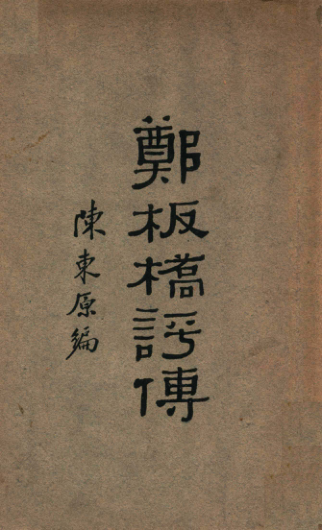 鄭板橋評傳
陳東原編